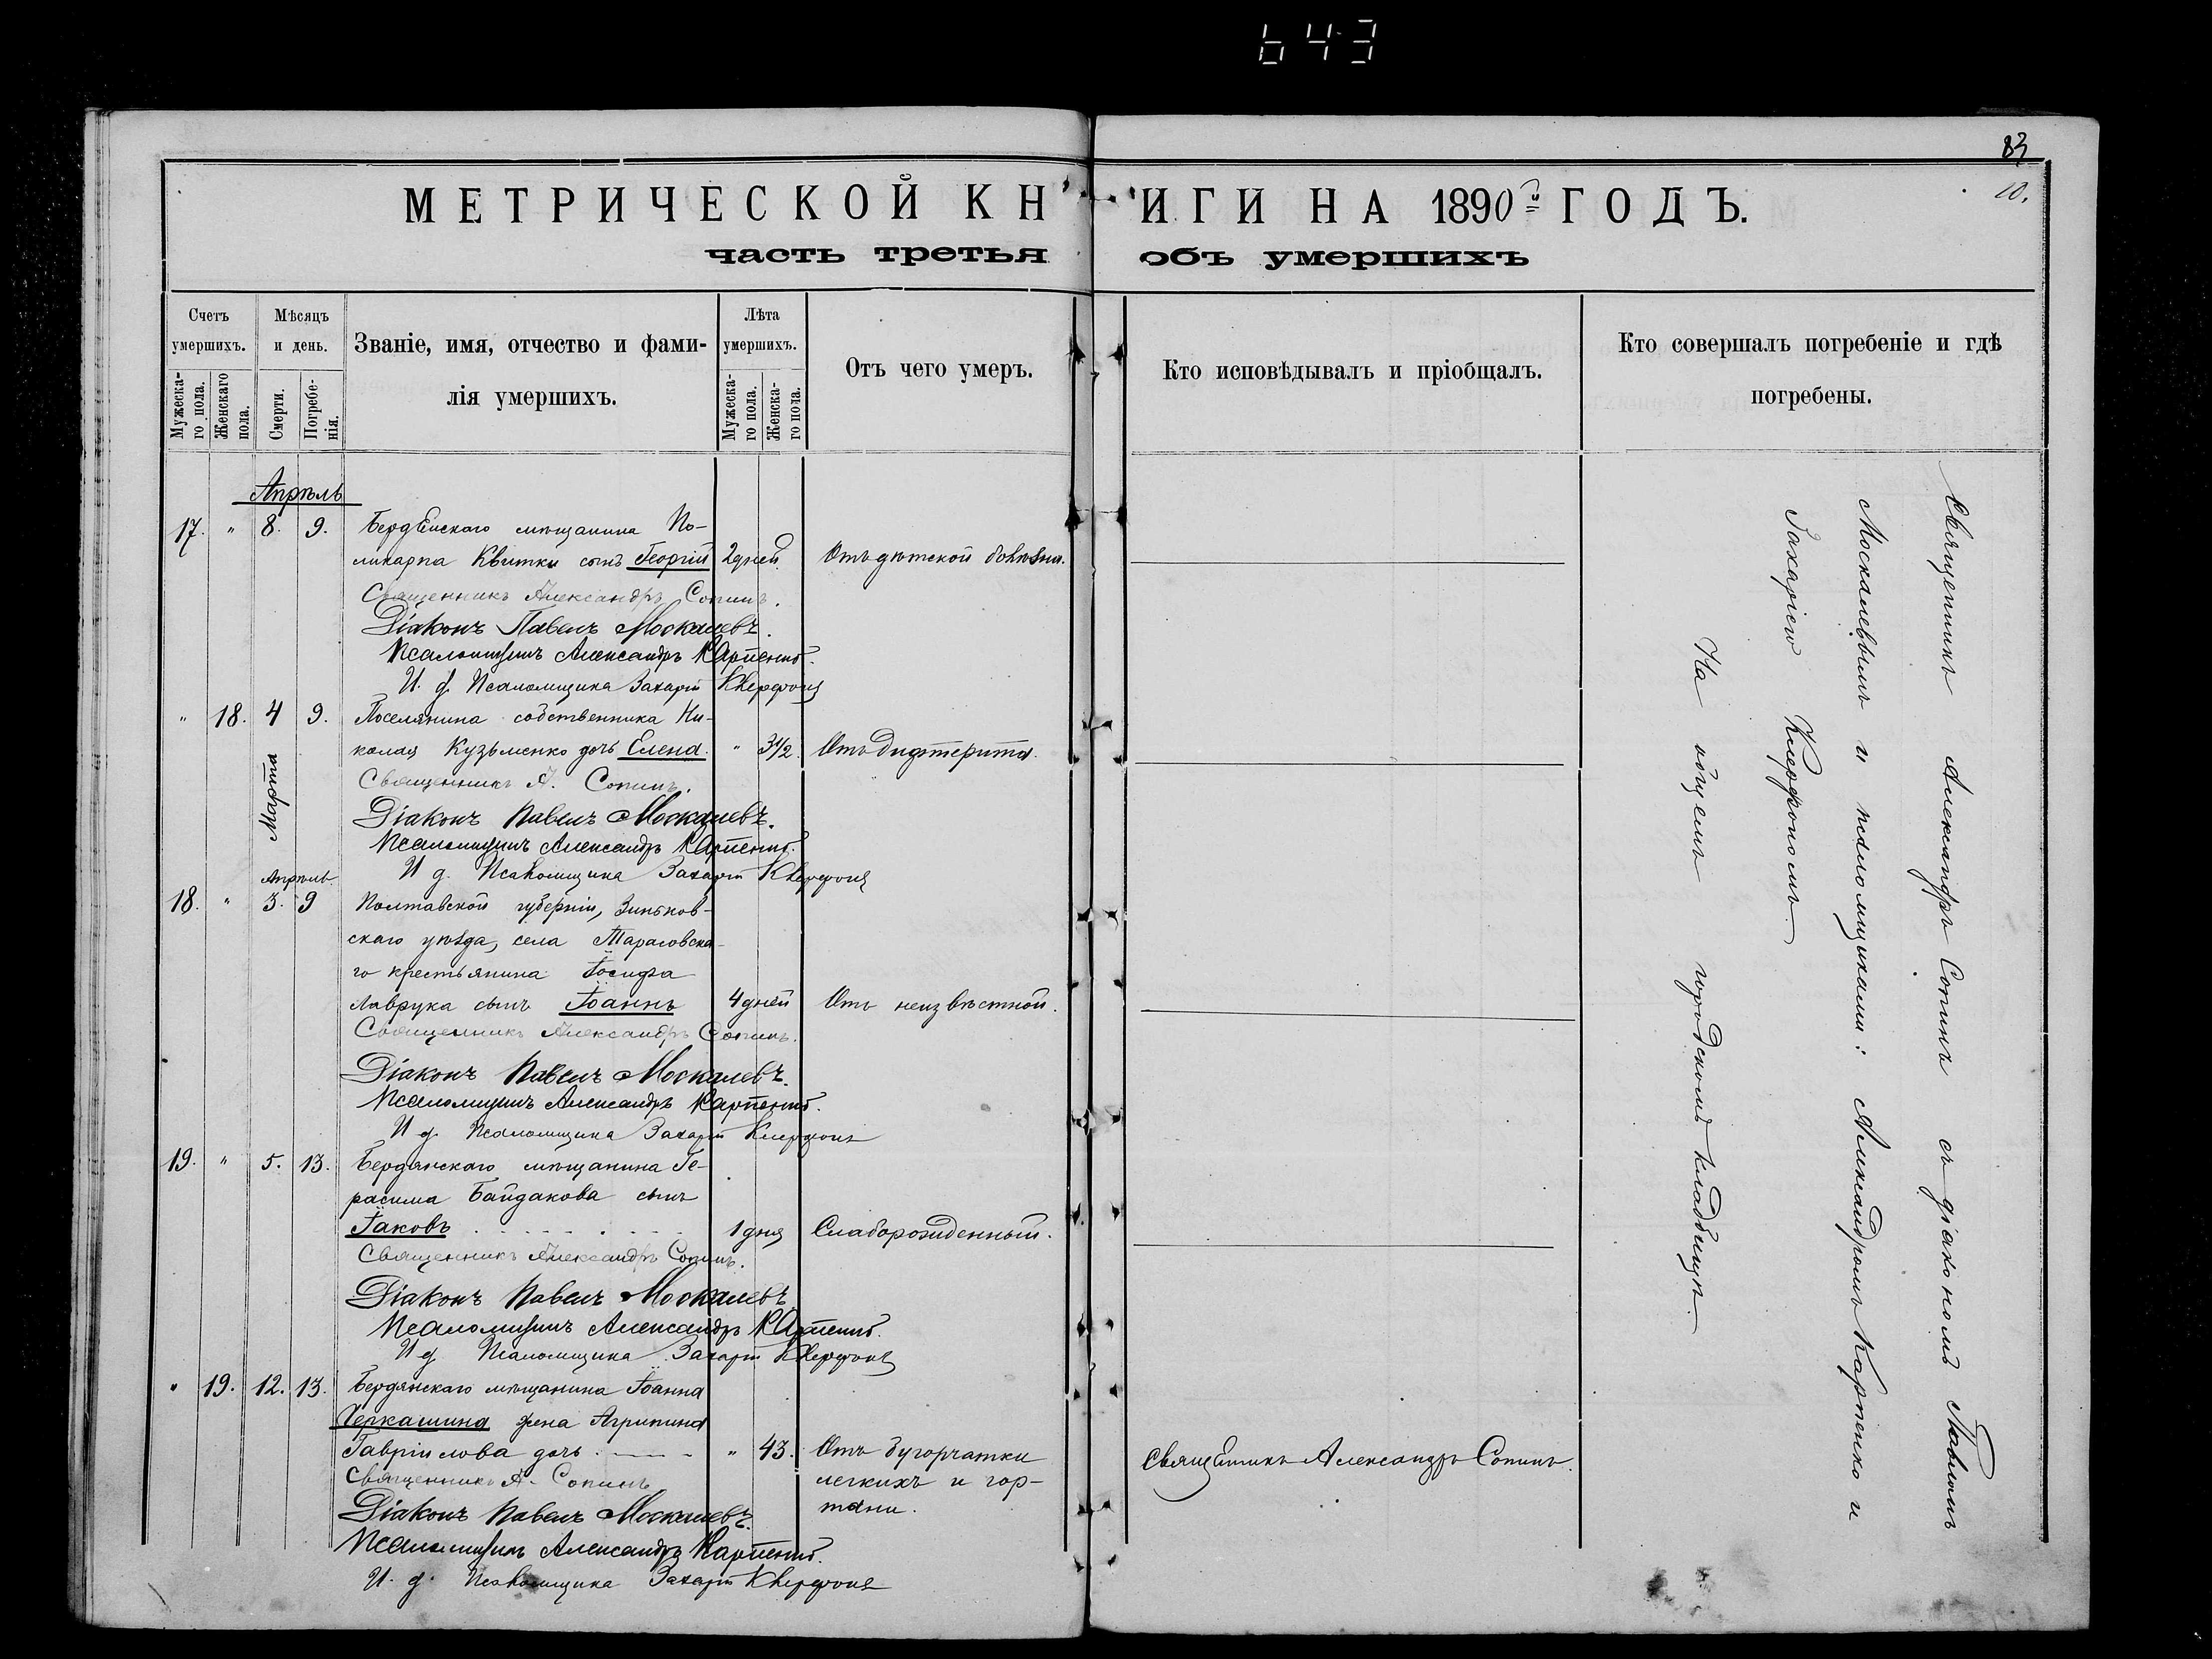 643
83
10.
МЕТРИЧЕСКОЙ КНИГИ НА 1890й ГОДЪ.
часть третья объ умершихъ
Счетъ умершихъ.
Мужескаго пола.
Женскаго пола.
Мѣсяцъ и день.
Смерти.
Погребенія.
Званіе, имя, отчество и фами-
лія умершихъ.
Лѣта умершихъ.
Мужескаго пола.
Женскаго пола.
Отъ чего умеръ.
Кто исповѣдывалъ и пріобщалъ.
Кто совершалъ погребеніе и гдѣ
погребены.
Апрѣль
17. " 8. 9. Бердянскаго мѣщанина По-
ликарпа Квитки сынъ Георгій 2 дней. Отъ дѣтской болѣзни.
Священникъ Александръ Сопинъ.
Діаконъ Павелъ Москалевъ.
Псаломщикъ Александръ Карпенко.
И. д. Псаломщика Захарій Ксерофонъ
" 18. 4 9. Поселянина собственника Ни-
колая Кузьменко дочь Елена. " 3 1/2. Отъ Дифтерита.
Марта
Священникъ А. Сопинъ.
Діаконъ Павелъ Москалевъ.
Псаломщикъ Александръ Карпенко.
И д. Псаломщика Захарій
Апрѣль.
18. " 3. 9 Полтавской губерніи, Зиньков-
скаго уѣзда, села Тарасовска-
го крестьянина Іосифа
Лаврука сынъ Іоаннъ 4 дней Отъ неизвѣстной.
Священникъ Александръ Сопинъ.
Діаконъ Павелъ Москалевъ.
Псаломщикъ Александръ Карпенко.
И д. Псаломщика Захарій
19. " 5. 13. Бердянскаго мѣщанина Ге-
расима Байдакова сынъ
Іаковъ 1 дня Слаборожденный.
Священникъ Александръ Сопинъ.
Діаконъ Павелъ Москалевъ
Псаломщикъ Александръ Карпенко.
И д Псаломщика Захарій
" 19. 12. 13. Бердянскаго мѣщанина Іоанна
Черкашина жена Агрипина
Гавріилова дочь " 43. Отъ бугорчатки
легкихъ и гор-
тани.
Священникъ Александръ Сопинъ.
Священникъ А. Сопинъ
Діаконъ Павелъ Москалевъ.
Псаломщикъ Александръ Карпенко.
И. д. Псаломщика Захарій
Священникъ Александръ Сопинъ съ діакономъ Павломъ
Москалевымъ и псаломщиками: Александромъ Карпенко и
Захаріею
На общемъ городскомъ кладбищѣ.